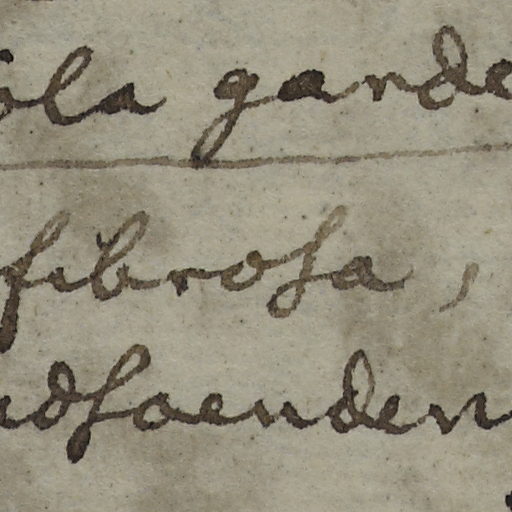 ola gande
fibrosa,
udsaenden